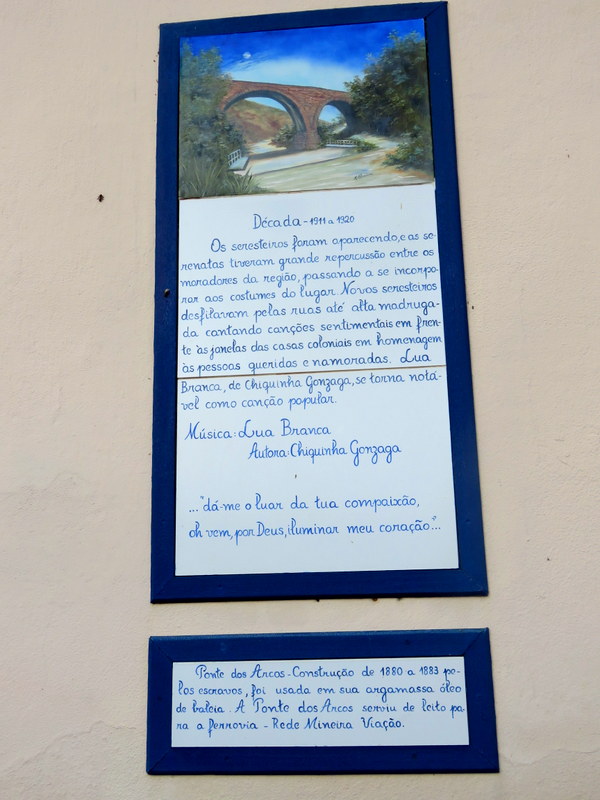 Década - 1911 a 1920
Os seresteiros foram aparecendo, e as se-
renatas tiveram grande repercussão entre os
moradores da região, passando a se incorpo-
rar aos costumes do lugar. Novos seresteiros
desfilavam pelas ruas até alta madruga-
da cantando canções sentimentais em fren-
te às janelas das casas coloniais em homenagem
às pessoas queridas e namoradas. Lua
Branca, de Chiquinha Gonzaga, se torna notá-
vel como canção popular.
Música: Lua Branca
Autora: Chiquinha Gonzaga
... "dá-me o luar da tua compaixão,
oh vem, por Deus, iluminar meu coração"...
Ponte dos Arcos - Construção de 1880 a 1883 pe-
los escravos, foi usada em sua argamassa óleo
de baleia. A Ponte dos Arcos serviu de leito pa-
ra a ferrovia - Rede Mineira Viação.